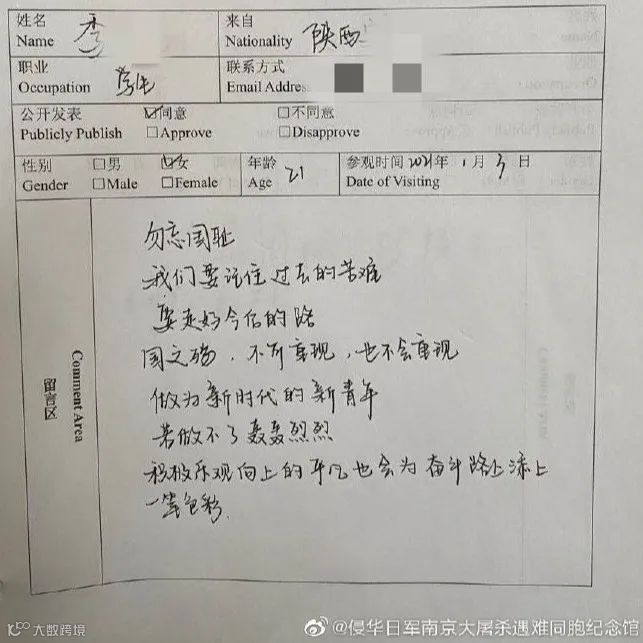 姓名 李 来自 陕西
Name Nationality
职业 学生 联系方式
Occupation Email Address
公开发表 ☑同意 □不同意
Publicly Publish □Approve □Disapprove
性别 □男 ☑女 年龄 21 参观时间 2021年 1月 3日
Gender □Male □Female Age Date of Visiting
留言区 Comment Area
勿忘国耻
我们要记住过去的苦难
要走好今后的路
国之殇,不可重现,也不会重现
做为新时代的新青年
若做不了轰轰烈烈
积极乐观向上的平凡也会为奋斗路上添上
一笔色彩.
大数跨境
@侵华日军南京大屠杀遇难同胞纪念馆